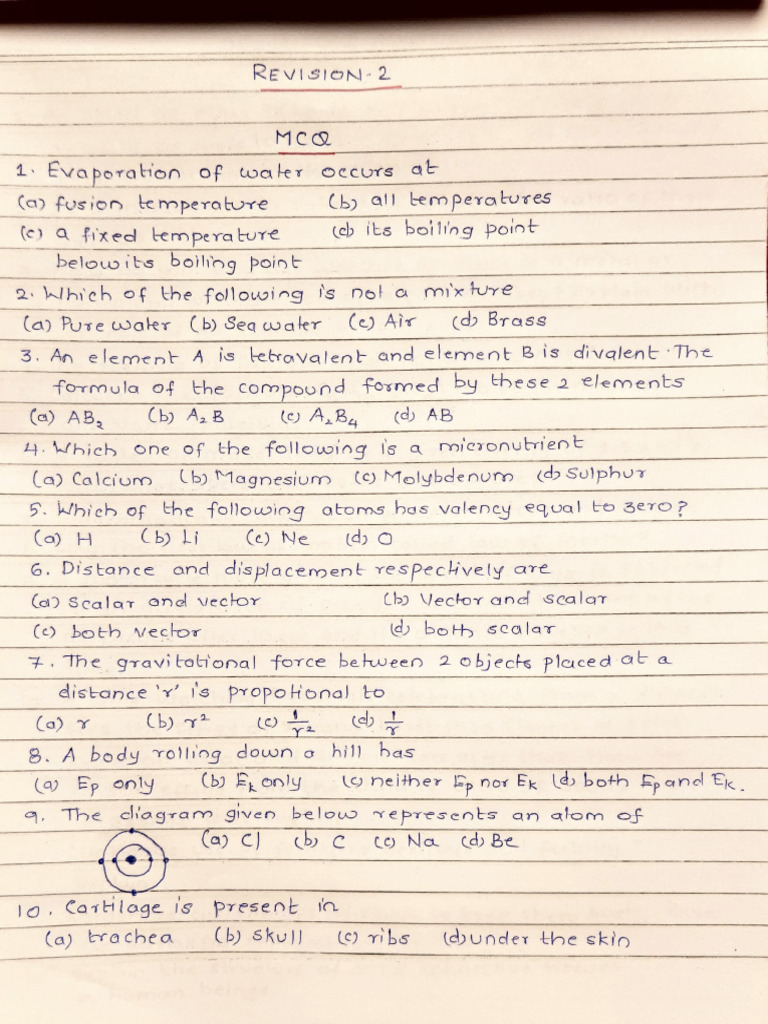 REVISION-2
MCQ
1. Evaporation of water occurs at
(a) fusion temperature (b) all temperatures
(c) a fixed temperature (d) its boiling point
below its boiling point
2. Which of the following is not a mixture
(a) Pure water (b) Sea water (c) Air (d) Brass
3. An element A is tetravalent and element B is divalent. The
formula of the compound formed by these 2 elements
(a) AB₂ (b) A₂B (c) A₂B₄ (d) AB
4. Which one of the following is a micronutrient
(a) Calcium (b) Magnesium (c) Molybdenum (d) Sulphur
5. Which of the following atoms has valency equal to zero?
(a) H (b) Li (c) Ne (d) O
6. Distance and displacement respectively are
(a) scalar and vector (b) Vector and scalar
(c) both vector (d) both scalar
7. The gravitational force between 2 objects placed at a
distance 'r' is propotional to
(a) r (b) r² (c) 1/r² (d) 1/r
8. A body rolling down a hill has
(a) Ep only (b) Ek only (c) neither Ep nor Ek (d) both Ep and Ek.
9. The diagram given below represents an atom of
(a) Cl (b) C (c) Na (d) Be
10. Cartilage is present in
(a) trachea (b) skull (c) ribs (d) under the skin